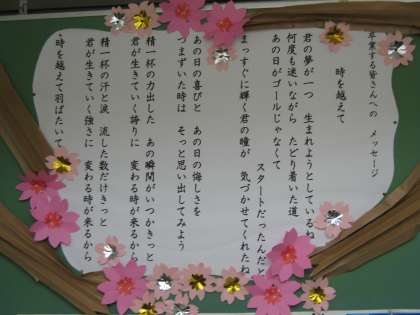 卒業する皆さんへの メッセージ
時を越えて
君の夢が一つ 生まれようとしているね
何度も迷いながら たどり着いた道
あの日がゴールじゃなくて
スタートだったんだと
まっすぐに輝く君の瞳が 気づかせてくれたね
あの日の喜びと あの日の悔しさを
つまずいた時は そっと思い出してみよう
精一杯の力出した あの瞬間がいつかきっと
君が生きていく誇りに 変わる時が来るから
精一杯の汗と涙 流した数だけきっと
君が生きていく強さに 変わる時が来るから
時を越えて羽ばたいて